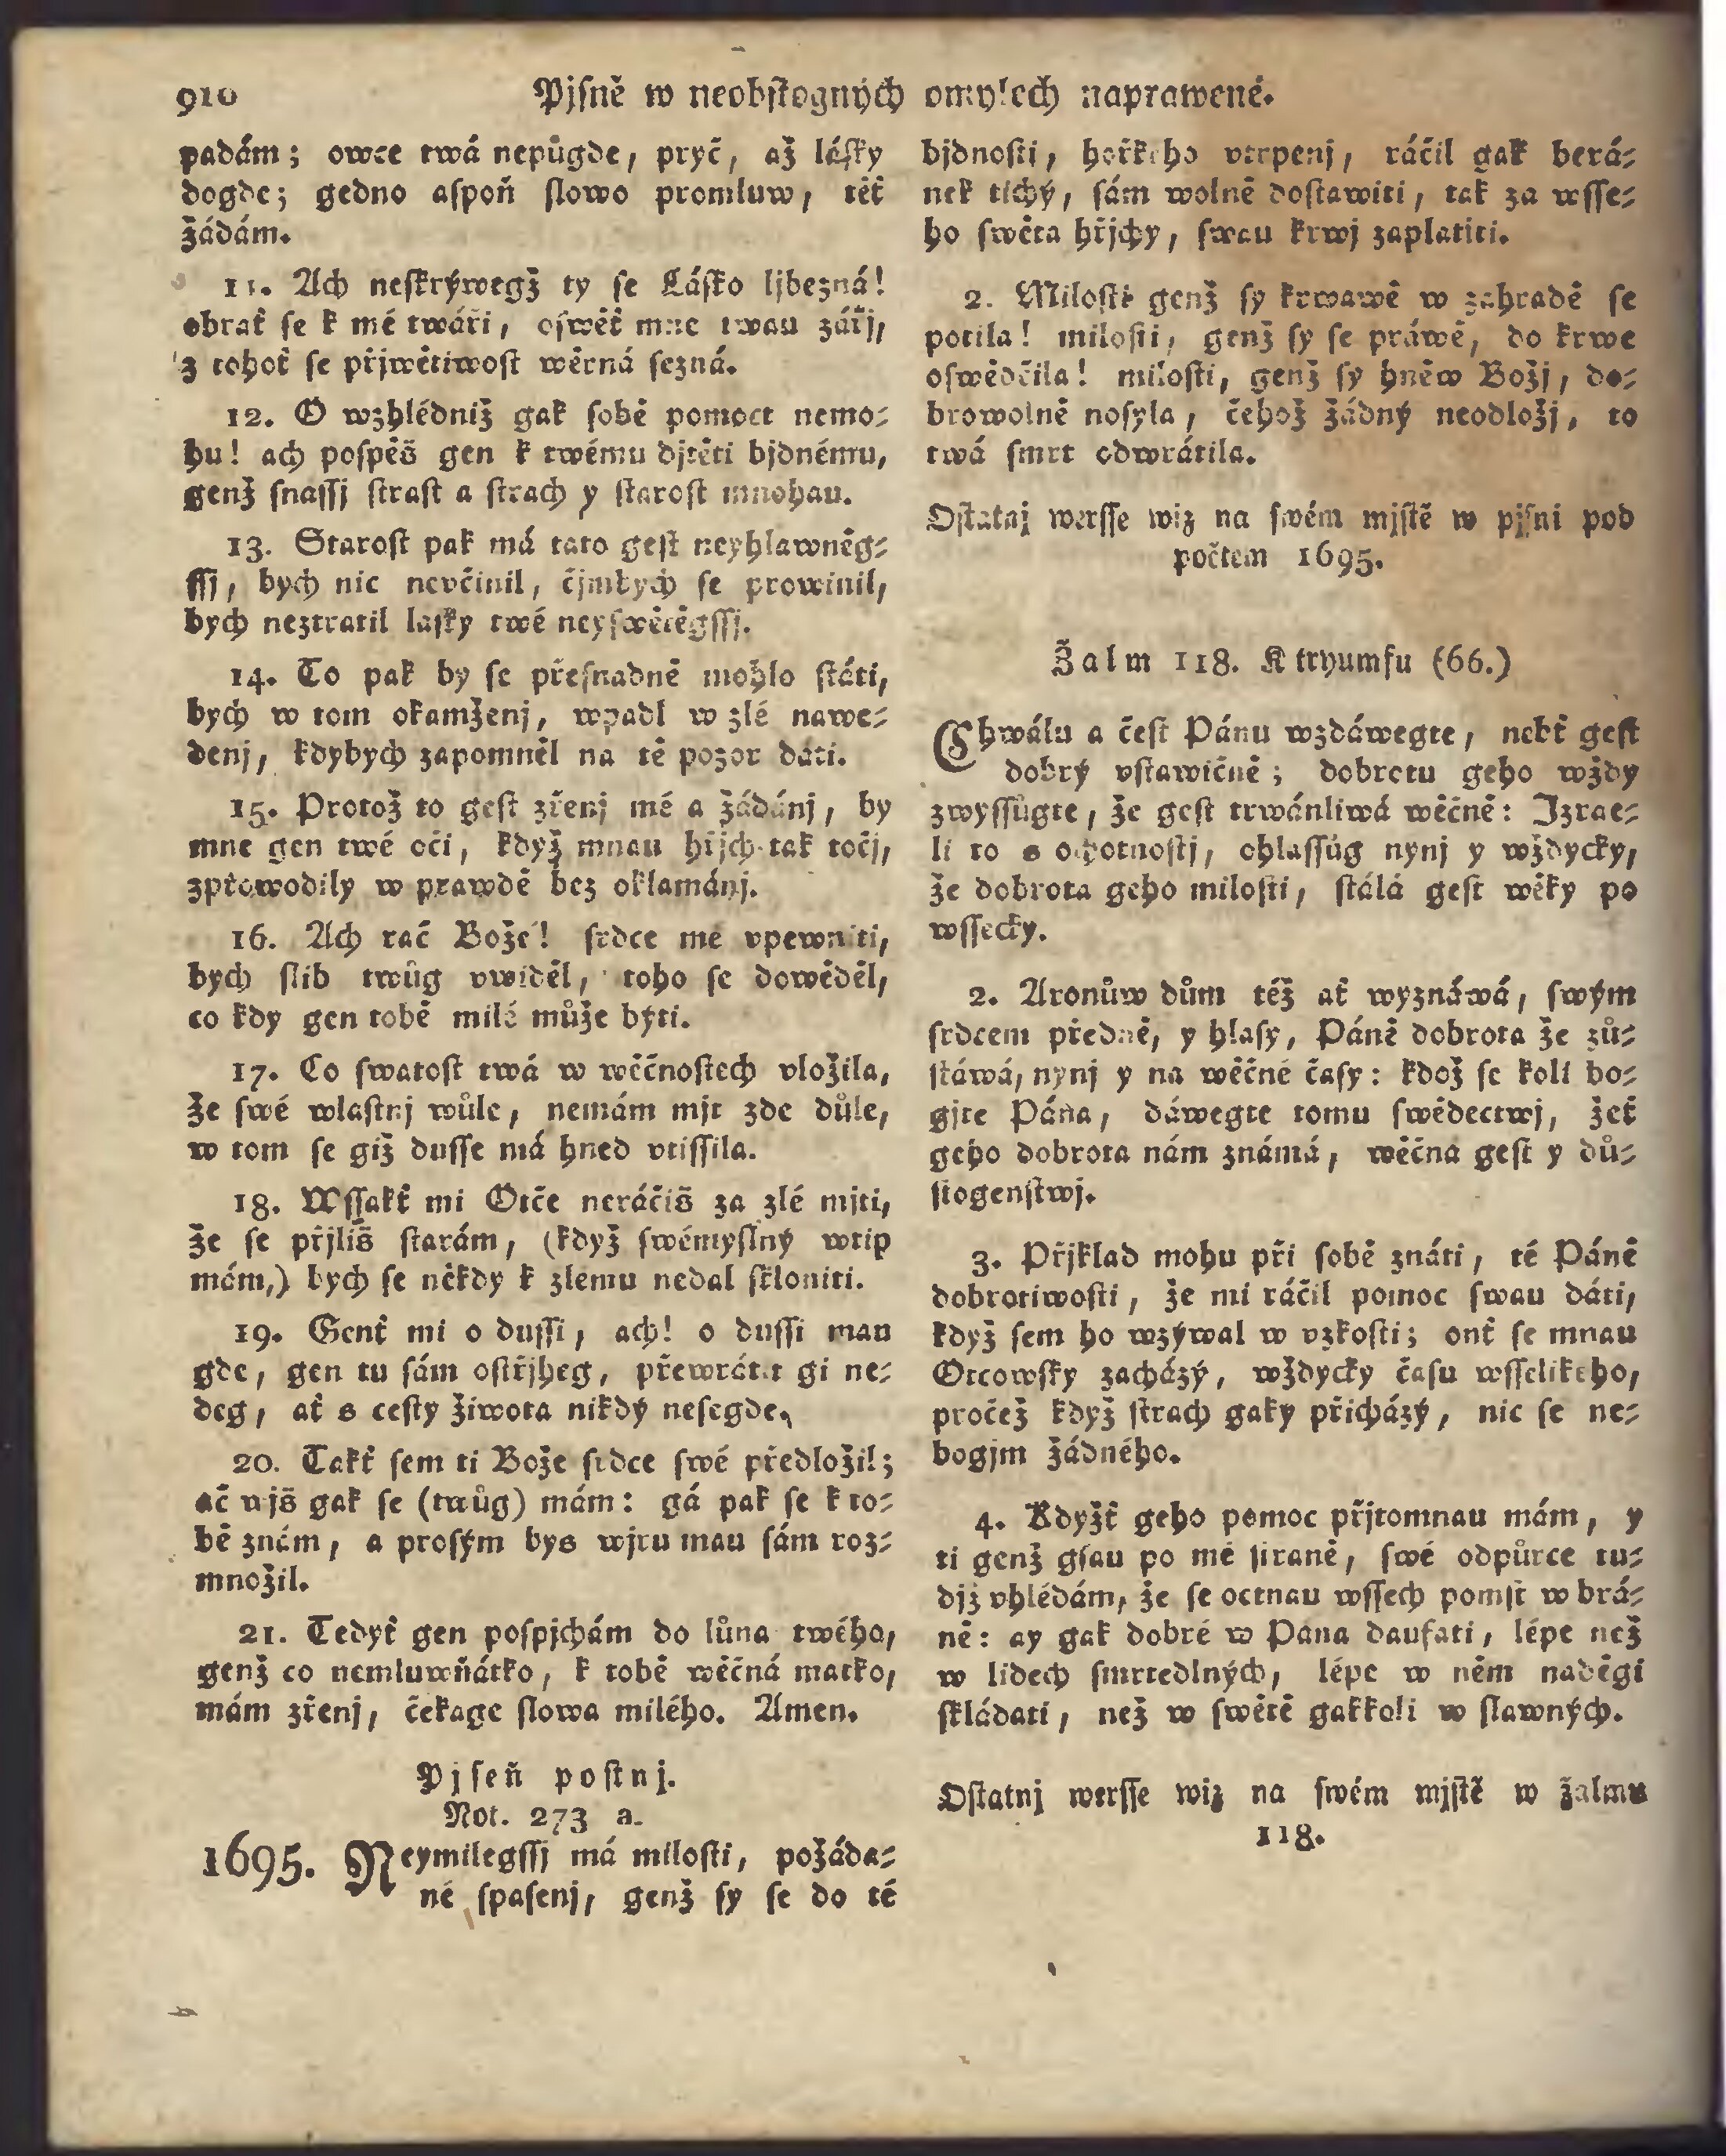 910
Pjſně w neobſtogných omylech naprawené.
padám; owce twá nepůgde, pryč, až láſky
dogde; gedno aſpoň ſlowo promluw, těť
žádám.
11. Ach neſkrýwegž ty ſe Láſko ljbezná!
obrať ſe k mé twáři, oſwěť mne twau zářj,
z tohoť ſe přjwětiwoſt wěrná ſezná.
12. O wzhlédniž gak ſobě pomoct nemo⸗
hu! ach poſpěš gen k twému djtěti bjdnému,
genž ſnaſſj ſtraſt a ſtrach y ſtaroſt mnohau.
13. Staroſt pak má tato geſt neyhlawněg⸗
ſſj, bych nic nevčinil, čjmbych ſe prowinil,
bych neztratil laſky twé neyſwětěgſſj.
14. To pak by ſe přeſnadně mohlo ſtáti,
bych w tom okamženj, wpadl w zlé nawe⸗
denj, kdybych zapomněl na tě pozor dáti.
15. Protož to geſt zřenj mé a žádánj, by
mne gen twé oči, když mnau hřjch tak točj,
zprowodily w prawdě bez oklamánj.
16. Ach rač Bože! ſrdce mé vpewniti,
bych ſlib twůg vwiděl, toho ſe dowěděl,
co kdy gen tobě milé může býti.
17. Co ſwatoſt twá w wěčnoſtech vložila,
že ſwé wlaſtnj wůle, nemám mjt zde důle,
w tom ſe giž duſſe má hned vtiſſila.
18. Wſſakť mi Otče neráčiš za zlé mjti,
že ſe přjliš ſtarám, (když ſwémyſlný wtip
mám,) bych ſe někdy k zlemu nedal ſkloniti.
19. Genť mi o duſſi, ach! o duſſi mau
gde, gen tu ſám oſtřjheg, přewrátit gi ne⸗
deg, ať s ceſty žiwota nikdý neſegde.
20. Takť ſem ti Bože ſrdce ſwé předložil;
ač wjš gak ſe (twůg) mám: gá pak ſe k to⸗
bě znám, a proſým bys wjru mau ſám roz⸗
množil.
21. Tedyť gen poſpjchám do lůna twého,
genž co nemluwňátko, k tobě wěčná matko,
mám zřenj, čekage ſlowa milého. Amen.
Pjſeň poſtnj.
Not. 273 a.
1695. Neymilegſſj má miloſti, požáda⸗
né ſpaſenj, genž ſy ſe do té
bjdnoſti, hořkého vtrpenj, ráčil gak berá⸗
nek tichý, ſám wolně doſtawiti, tak za wſſe⸗
ho ſwěta hřjchy, ſwau krwj zaplatiti.
2. Miloſti genž ſy krwawě w zahradě ſe
potila! miloſti, genž ſy ſe práwě, do krwe
oſwědčila! miloſti, genž ſy hněw Božj, do⸗
browolně noſyla, čehož žádný neodložj, to
twá ſmrt odwrátila.
Oſtatnj werſſe wiz na ſwém mjſtě w pjſni pod
počtem 1695.
Žalm 118. K tryumfu (66.)
Chwálu a čeſt Pánu wzdáwegte, nebť geſt
dobrý vſtawičně; dobrotu geho wždy
zwyſſůgte, že geſt trwánliwá wěčně: Izrae⸗
li to s ochotnoſtj, ohlaſſůg nynj y wždycky,
že dobrota geho miloſti, ſtálá geſt wěky po
wſſecky.
2. Aronůw dům též ať wyznáwá, ſwým
ſrdcem předně, y hlaſy, Páně dobrota že zů⸗
ſtáwá, nynj y na wěčné čaſy: kdož ſe koli bo⸗
gjte Pána, dáwegte tomu ſwědectwj, žeť
geho dobrota nám známá, wěčna geſt y dů⸗
ſtogenſtwj.
3. Přjklad mohu při ſobě znáti, té Páně
dobrotiwoſti, že mi ráčil pomoc ſwau dáti,
když ſem ho wzýwal w vzkoſti; onť ſe mnau
Otcowſky zacházý, wždycky čaſu wſſelikého,
pročež když ſtrach gaky přicházý, nic ſe ne⸗
bogjm žádného.
4. Kdyžť geho pomoc přjtomnau mám, y
ti genž gſau po mé ſtraně, ſwé odpůrce tu⸗
djž vhlédám, že ſe octnau wſſech pomſt w brá⸗
ně: ay gak dobré w Pána daufati, lépe než
w lidech ſmrtedlných, lépe w něm naděgi
ſkládati, než w ſwětě gakkoli w ſlawných.
Oſtatnj werſſe wiz na ſwém mjſtě w žalmu
118.